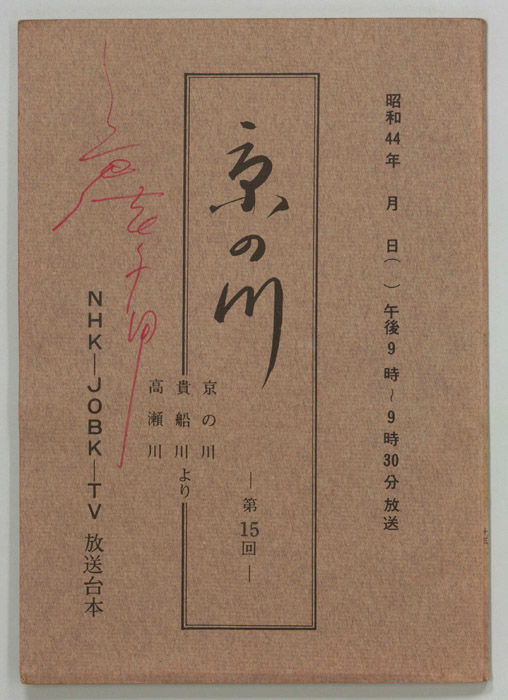 昭和44年 月 日( )午後9時~9時30分放送
京の川
―第15回―
京の川
貴船川より
高瀬川
NHK―JOBK―TV 放送台本